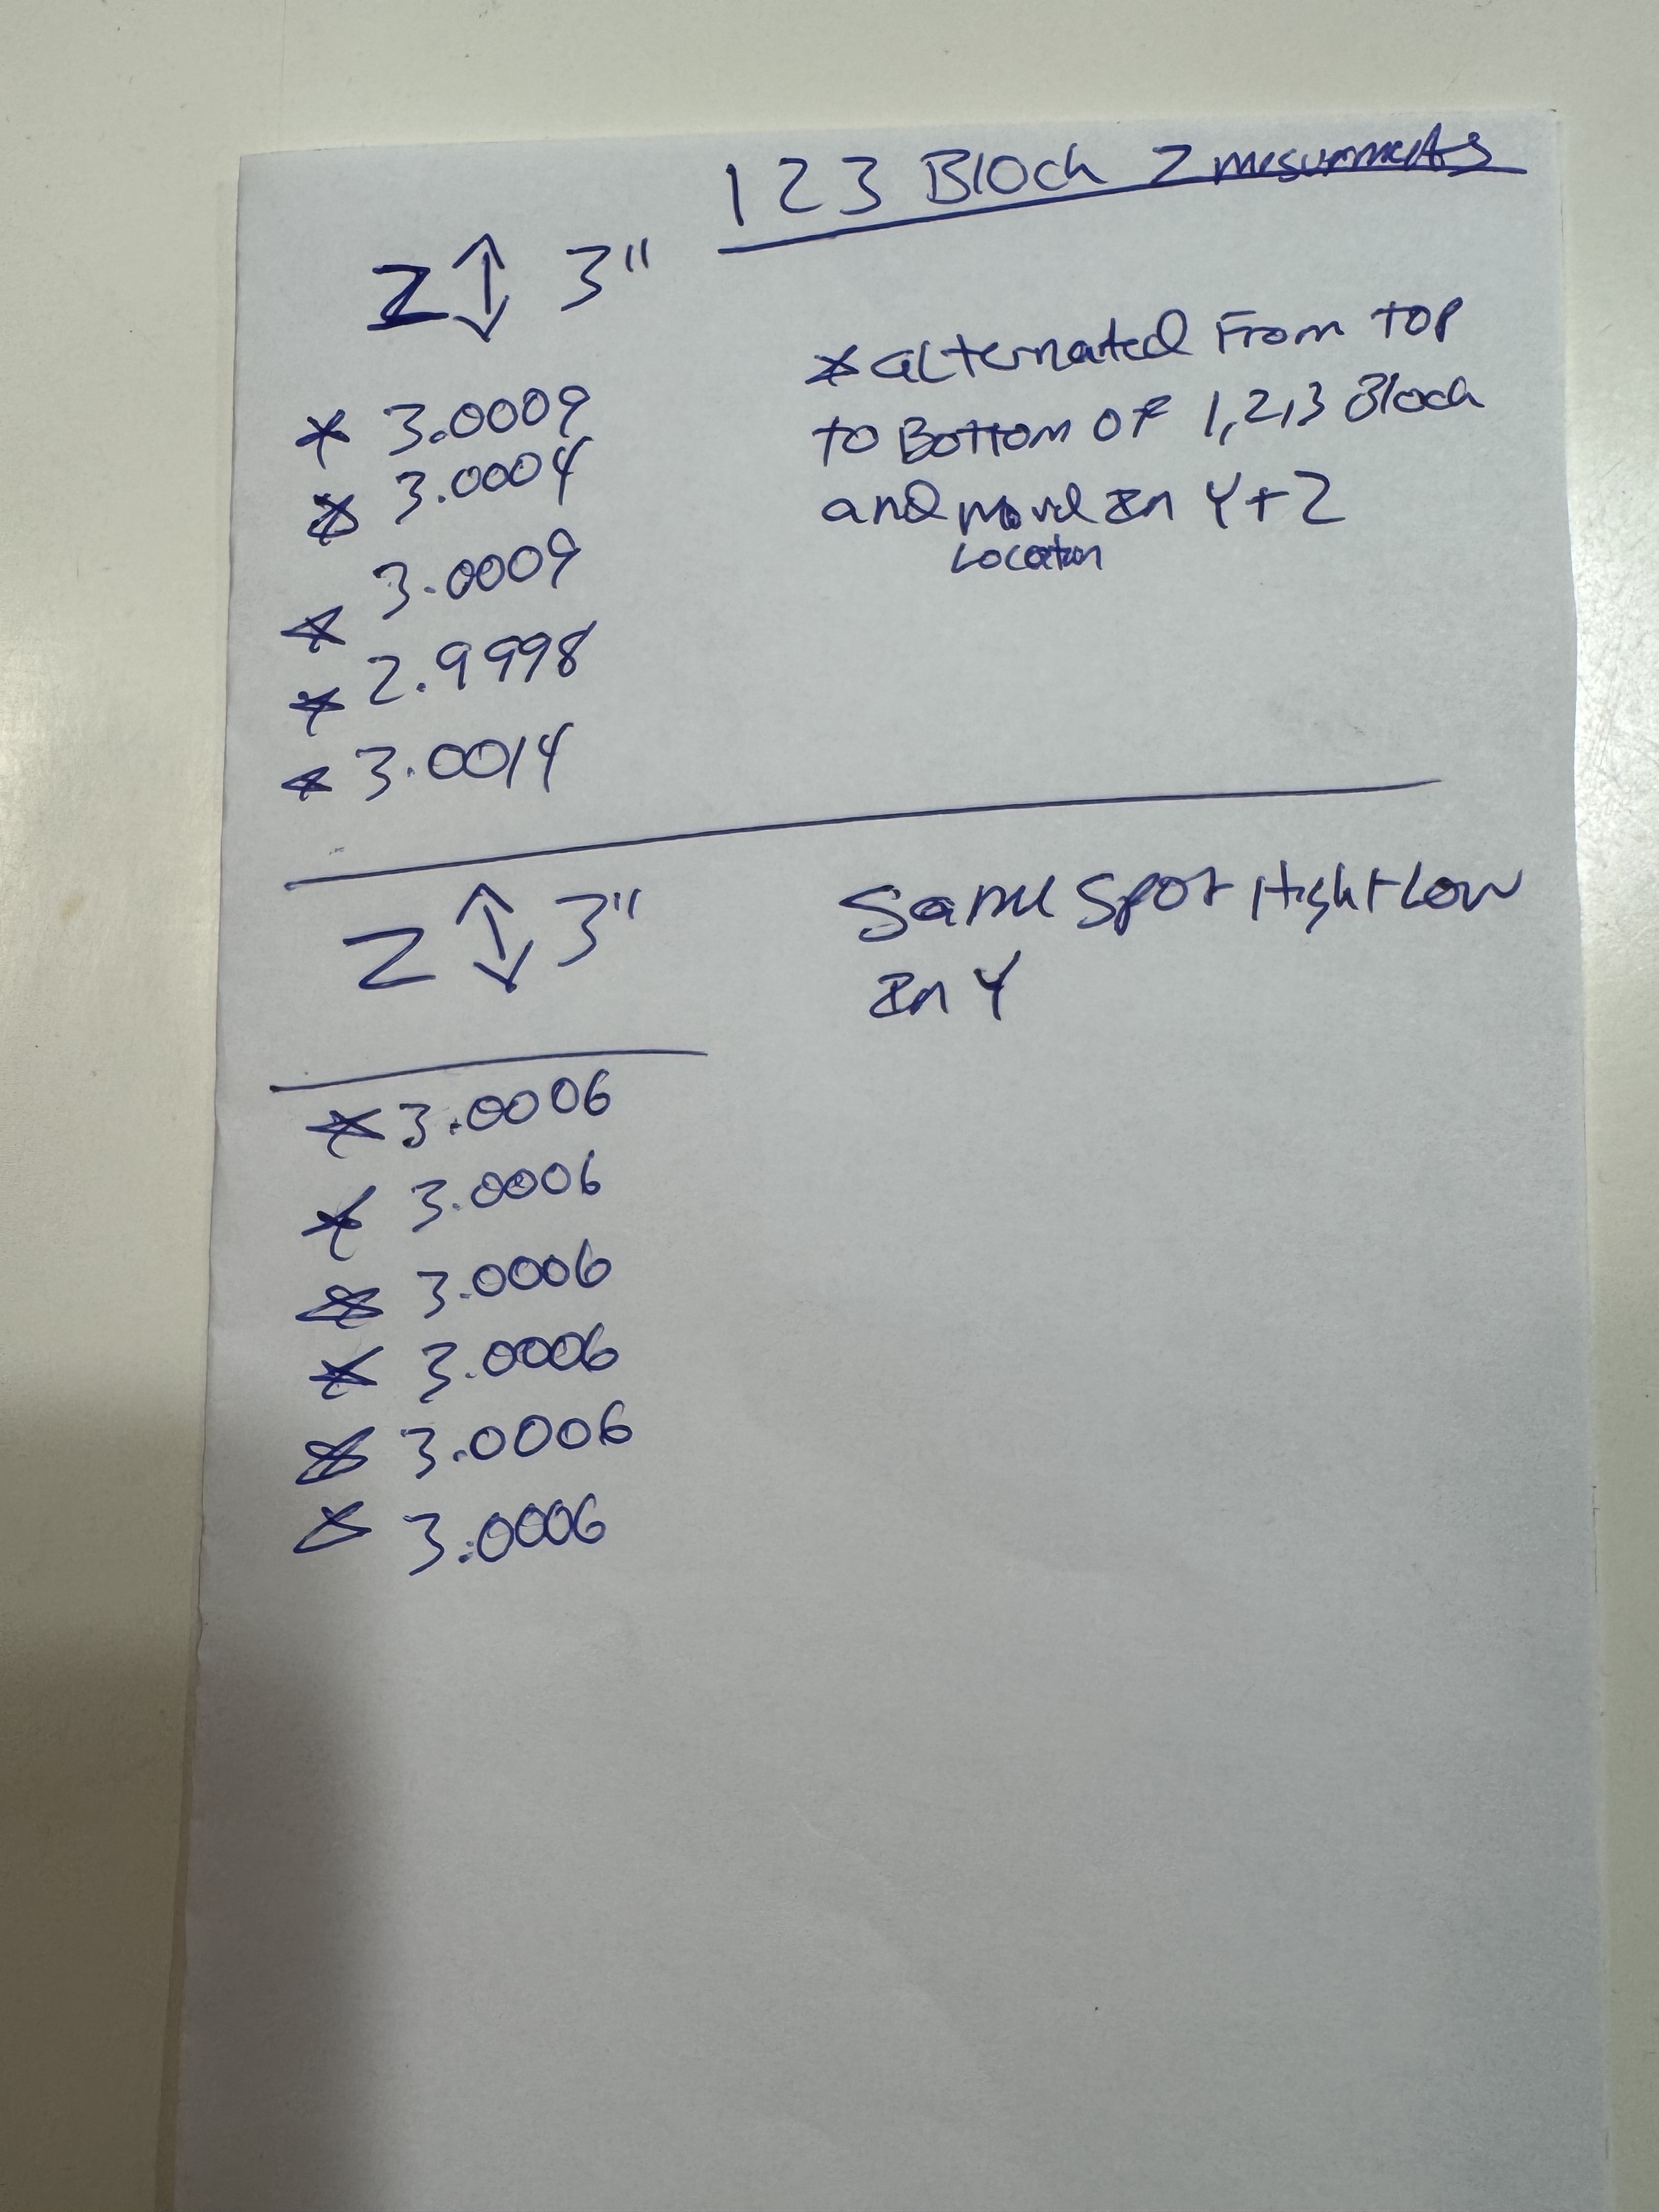 123 Block Z mesurments
Z ↕ 3"
* alternated From top
to Bottom OF 1,2,3 Block
and moved In Y + Z
Location
* 3.0009
* 3.0004
* 3.0009
* 2.9998
* 3.0014
Z ↕ 3"
Same Spot High + Low
In Y
* 3.0006
* 3.0006
* 3.0006
* 3.0006
* 3.0006
* 3.0006